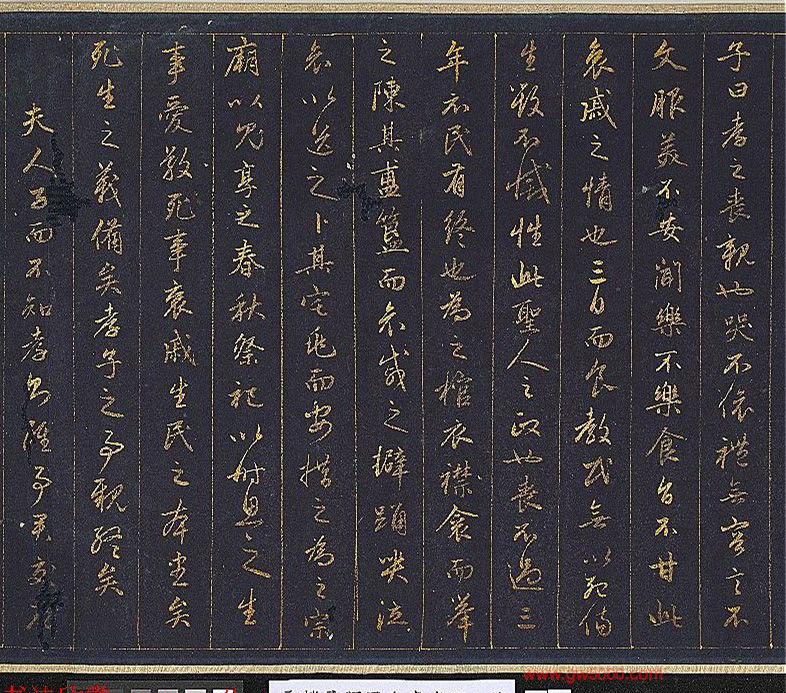 子曰孝之喪親也哭不依禮無容言不
文服美不安聞樂不樂食旨不甘此
哀戚之情也三日而食教民無以死傷
生毀不滅性此聖人之政也喪不過三
年示民有終也為之棺衣襟衾而舉
之陳其簠簋而哀慼之擗踊哭泣
哀以送之卜其宅兆而安措之為之宗
廟以鬼享之春秋祭祀以時思之生
事愛敬死事哀戚生民之本盡矣
死生之義備矣孝子之事親終矣
夫人子而不知孝
www.gw5000.com